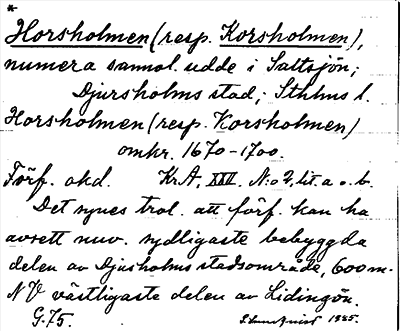 *
Horsholmen (resp. Korsholmen),
numera sannol. udde i Saltsjön;
Djursholms stad; Sthlms l.
Horsholmen (resp. Korsholmen)
omkr. 1670-1700.
Förf. okd. Kr.A, XXV. N:o 2, lit. a o. b.
Det synes trol. att förf. kan ha
avsett nuv. sydligaste bebyggda
delen av Djusholms stadsområde, 600 m.
NV västligaste delen av Lidingön.
G. 75. 1925.